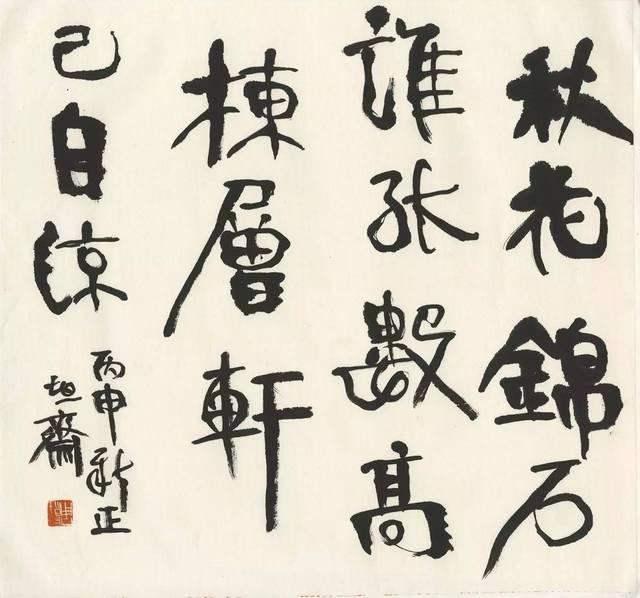 秋花錦石
誰數高
棟層軒
已自涼
丙申新正
坦齋